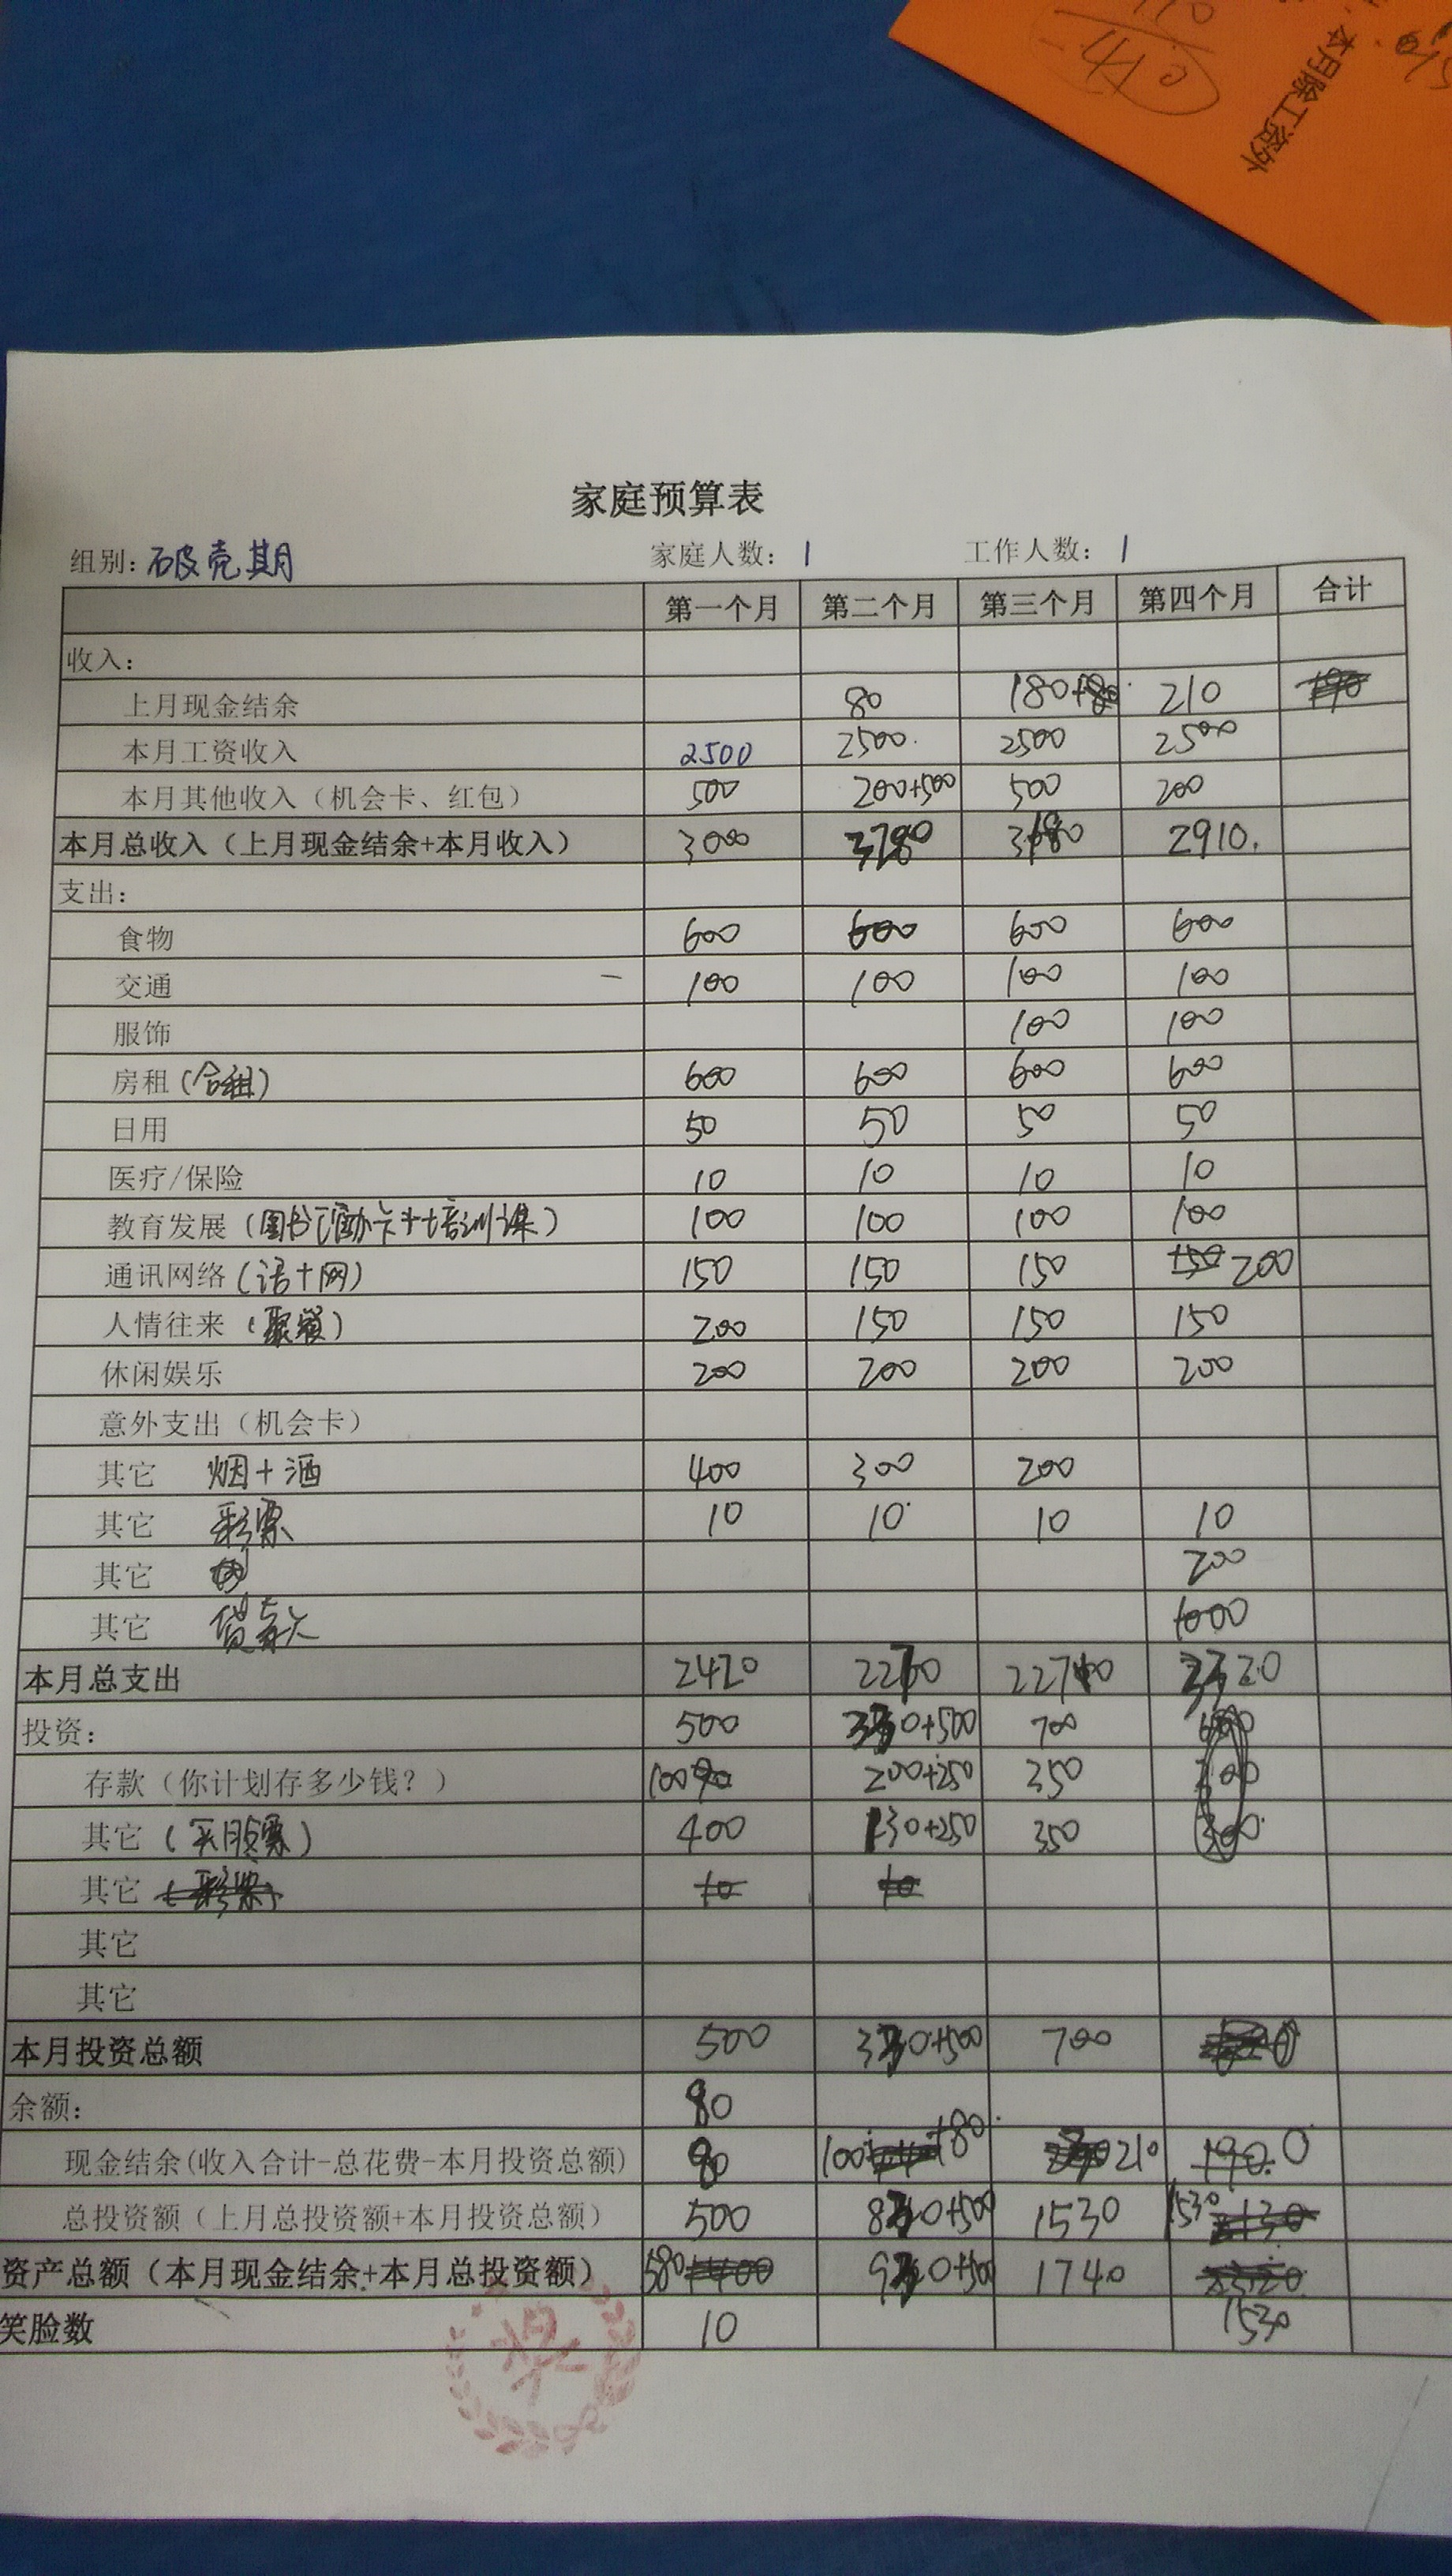 本月除工资外
家庭预算表
组别: 破壳期 家庭人数: 1 工作人数: 1
第一个月 第二个月 第三个月 第四个月 合计
收入:
上月现金结余 80 180 210
本月工资收入 2500 2500 2500 2500
本月其他收入（机会卡、红包） 500 200+500 500 200
本月总收入（上月现金结余+本月收入） 3000 3280 3180 2910
支出:
食物 600 600 600 600
交通 100 100 100 100
服饰 100 100
房租 (合租) 600 600 600 600
日用 50 50 50 50
医疗/保险 10 10 10 10
教育发展 100 100 100 100
通讯网络 (话+网) 150 150 150 150 200
人情往来 (聚餐) 200 150 150 150
休闲娱乐 200 200 200 200
意外支出（机会卡）
其它 烟+酒 400 300 200
其它 彩票 10 10 10 10
其它 200
其它 贷款 1000
本月总支出 2420
投资: 500 700
存款（你计划存多少钱？） 100 200+250 350
其它 (买股票) 400 130+250 350
其它 (彩票) 10 10
其它
其它
本月投资总额 500 700 0
余额: 80
现金结余(收入合计-总花费-本月投资总额) 210 190 0
总投资额（上月总投资额+本月投资总额） 500 1530 1530
资产总额（本月现金结余+本月总投资额） 580 1740
笑脸数 10 1530